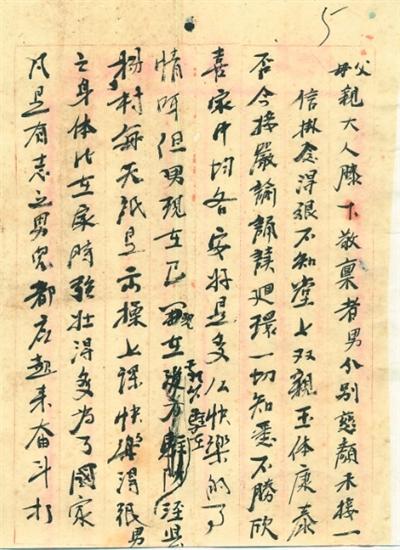 5
父母親大人膝下敬稟者男分别慈顔未接一
信掛念得很不知堂上双親玉体康泰
否今接嚴諭誦讀迴環一切知悉不勝欣
喜家中均各安好是多么快樂的事
情呵但男現在已在後方涇县
楊村每天祇是操上課快樂得很男
之身体比在家時強壯得多为了國家
凡是有志之男兒都应起来奋斗打